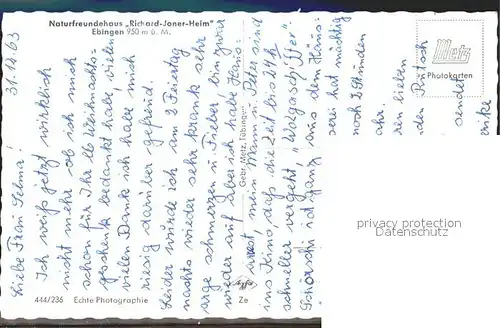 Naturfreundehaus „Richard-Joner-Heim"
Ebingen 950 m ü. M.
Metz
Photokarten
31.12.63
Liebe Frau Selma!
Ich weiß jetzt wirklich
nicht mehr ob ich mich
schon für Ihr lb Weihnachts-
geschenk bedankt habe, vielen
vielen Dank ich habe mich
riesig darüber gefreud.
Leider wurde ich am 2 Feiertag
nachts wieder sehr krank sehr
arge schmerzen u. Fieber bin zwar
wieder auf aber ich habe Haus-
mein Mann u. Peter sind
ins Kino, daß die Zeit bis 24 h
schneller vergeht,
ist ganz aus dem Häus-
hat mächtig
noch 2 Stunden
ahr.
ren lieben
Rutsch
sendet
Gebr. Metz, Tübingen
Agfa
444/236 Echte Photographie Ze
privacy protection
Datenschutz